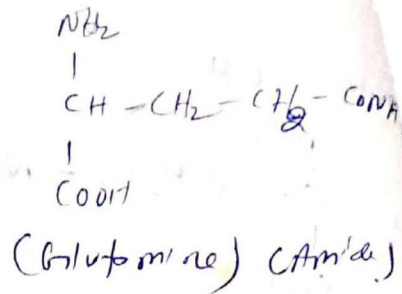 NH2
CH - CH2 - CH2 - CONH
COOH
(Glutamine) (Amide)